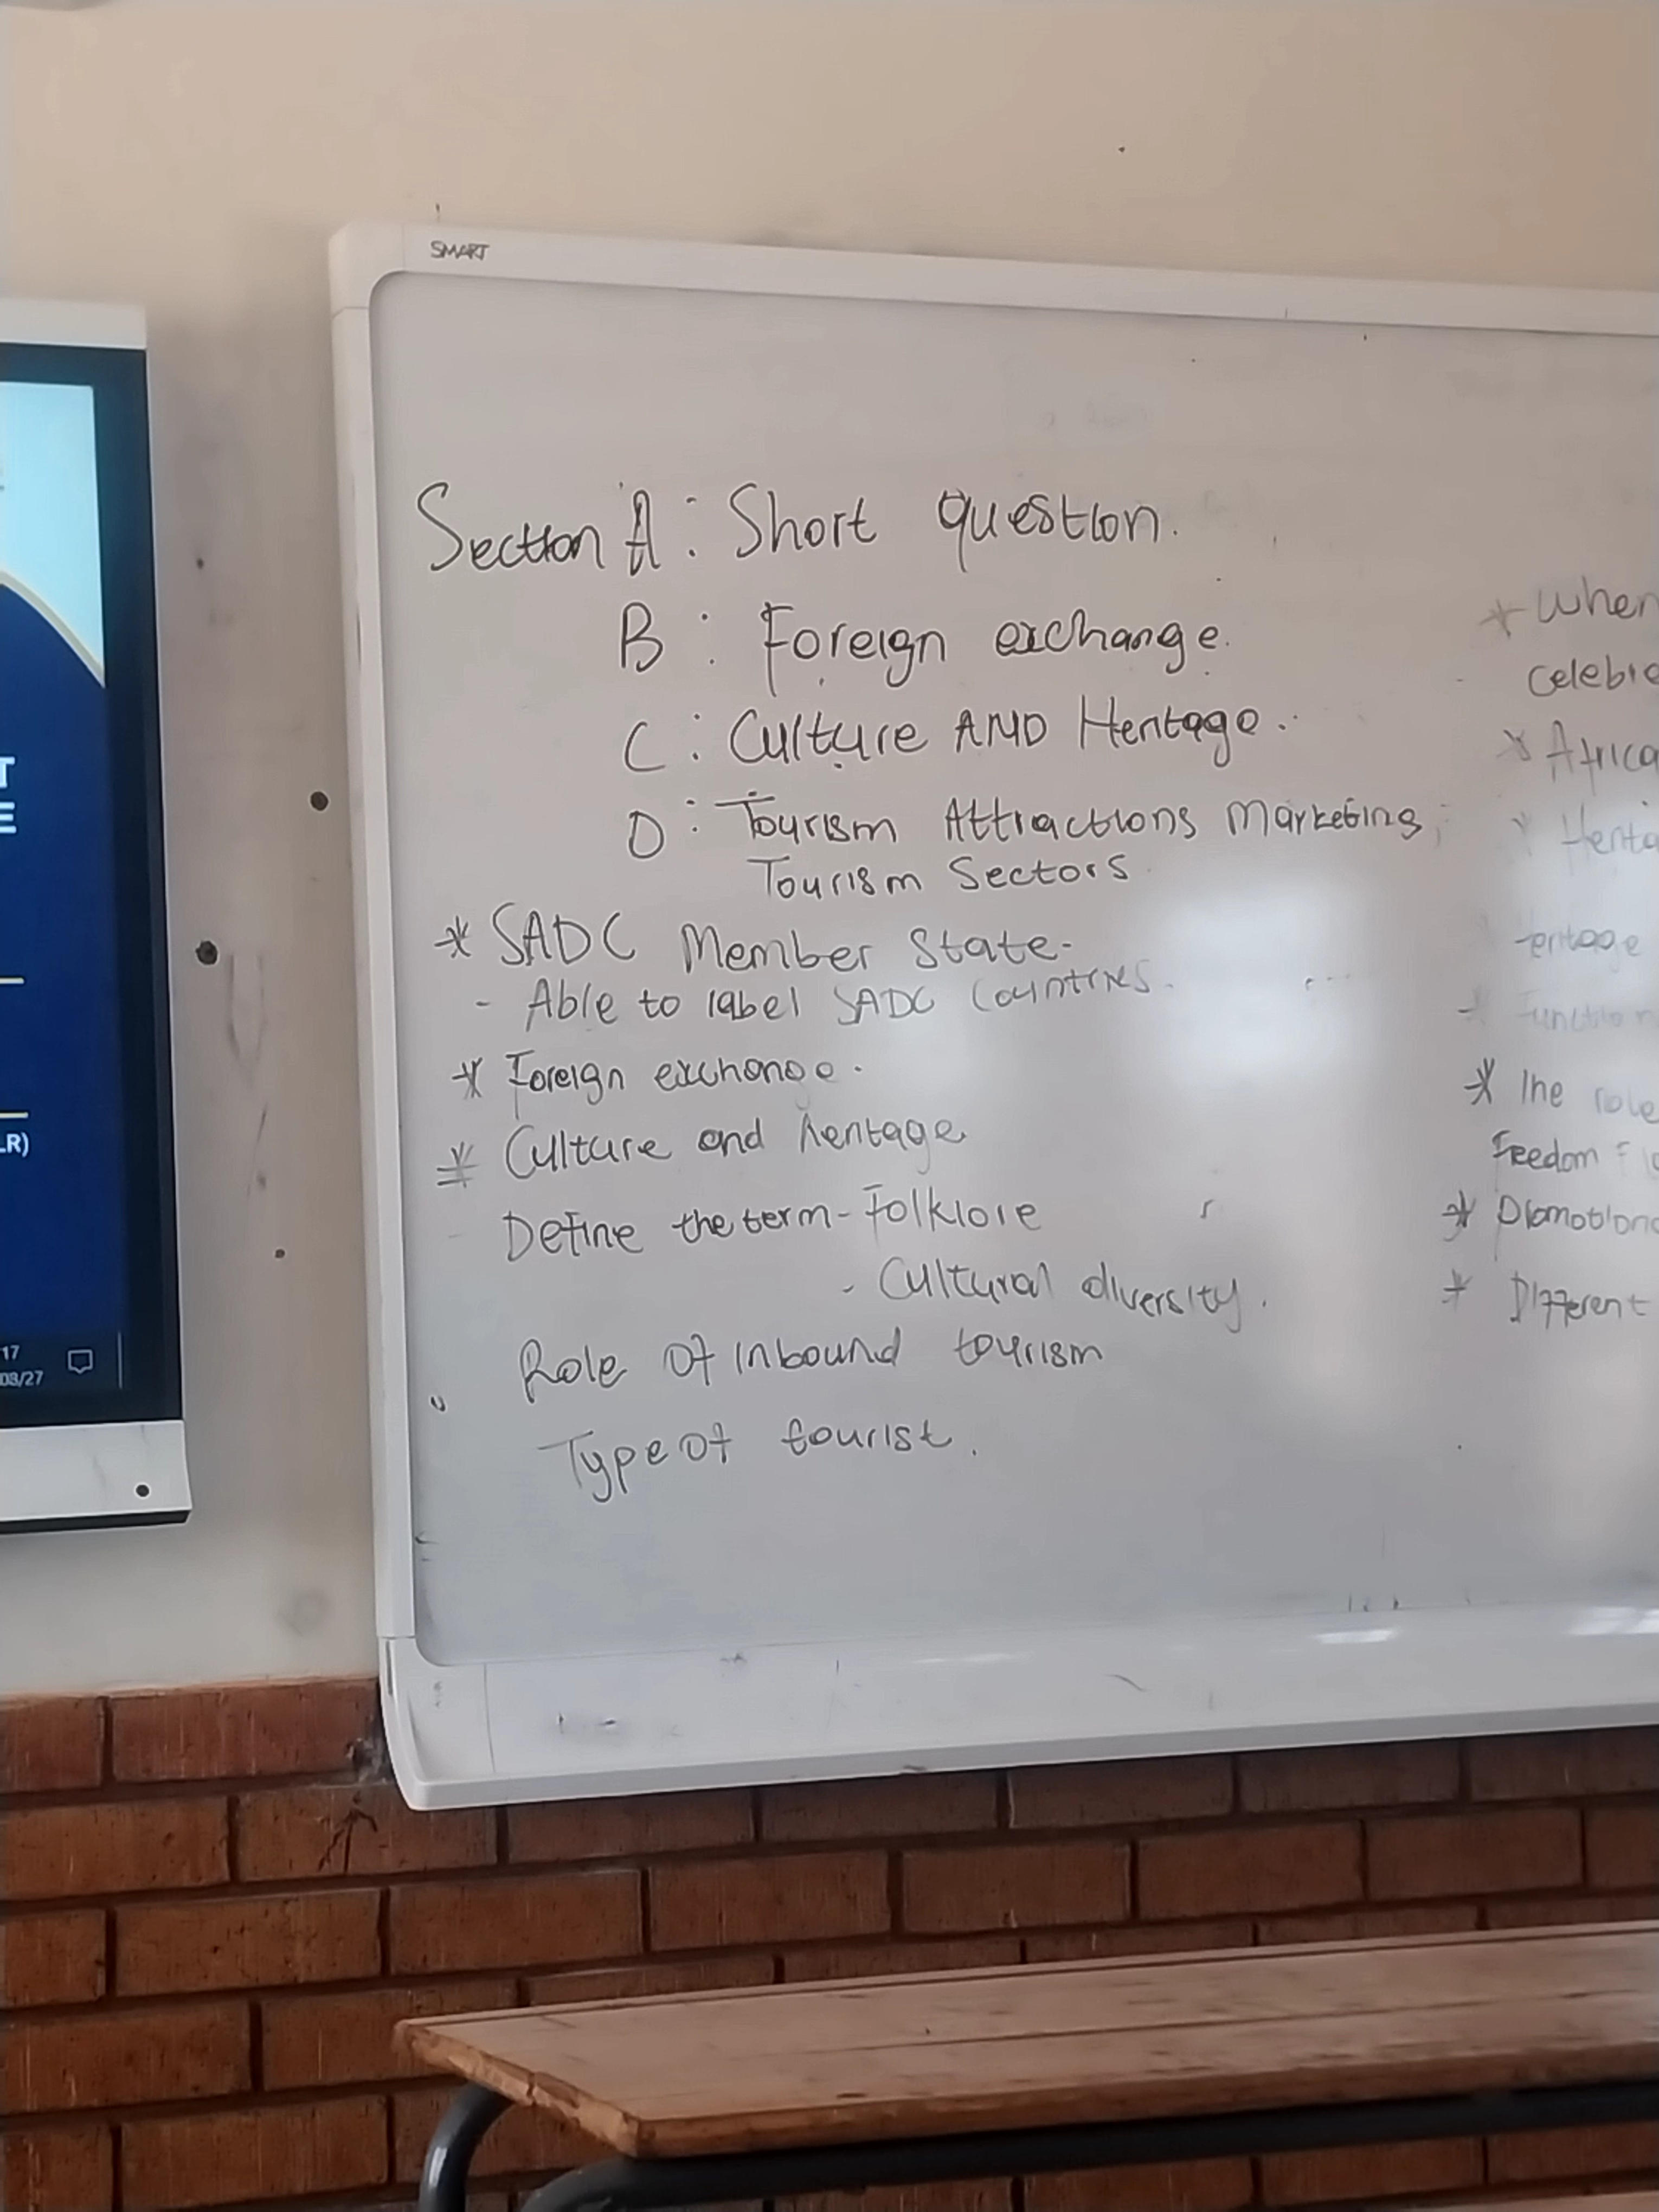 SMART
Section A : Short question.
B : Foreign exchange.
C : Culture AND Heritage.
D : Tourism Attractions Marketing,
Tourism Sectors
* SADC Member State-
- Able to label SADC Countries.
* Foreign exchange.
* Culture and heritage
Define the term - Folklore
- Cultural diversity.
Role of inbound tourism
Type of tourist.
* When
Celebr
* Africa
* Herita
Heritage
* Function
* The role
Freedom
* Promotion
* Different
T
E
LR)
17
08/27